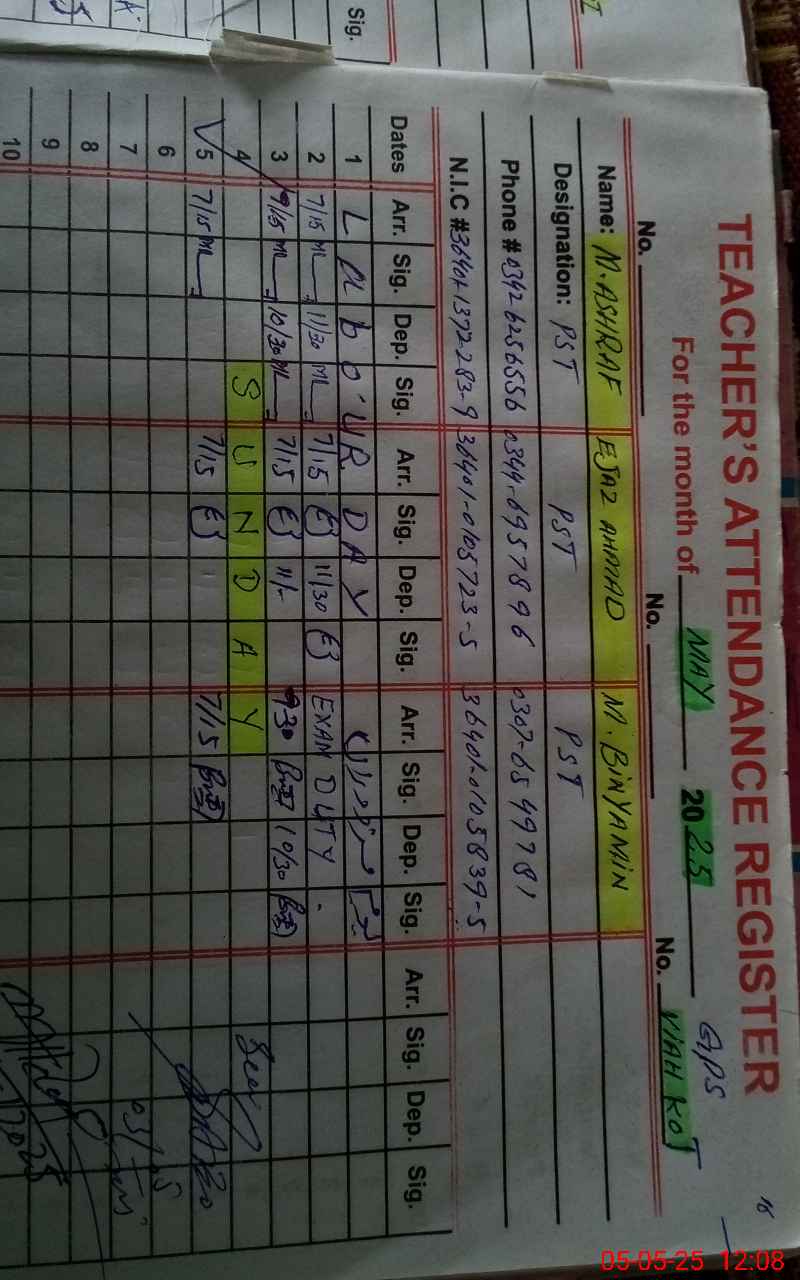 Sig.
TEACHER'S ATTENDANCE REGISTER
16
For the month of MAY 2025 GPS
No. No. No. VIAH KOT
Name: M. ASHRAF EJAZ AHMAD M. BINYAMIN
Designation: PST PST PST
Phone # 03426256556 0344-6957896 0307-6549781
N.I.C # 36401-0105723-5 36401-0105839-5
Dates Arr. Sig. Dep. Sig. Arr. Sig. Dep. Sig. Arr. Sig. Dep. Sig. Arr. Sig. Dep. Sig.
1 LABOUR DAY
2 7/15 11/30 7/15 11/30 EXAM DUTY
3 9/15 10/30 7/15 11/- 9 30 10/30
4 SUNDAY Seen
5 7/15 7/15 7/15
6
7 03/05
8
9
10 2025
05-05-25 12:08